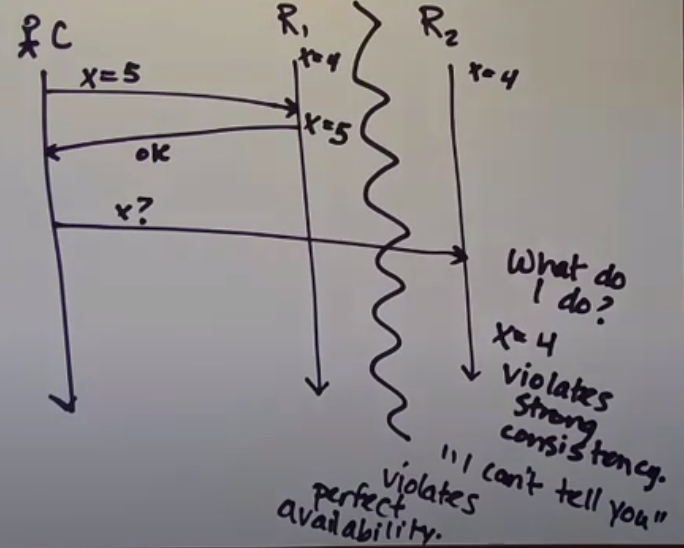 C
R₁
R₂
x=4
x=4
x=5
x=5
ok
x?
What do
I do?
x=4
violates
strong
consistency.
"I can't tell you"
violates
perfect
availability.